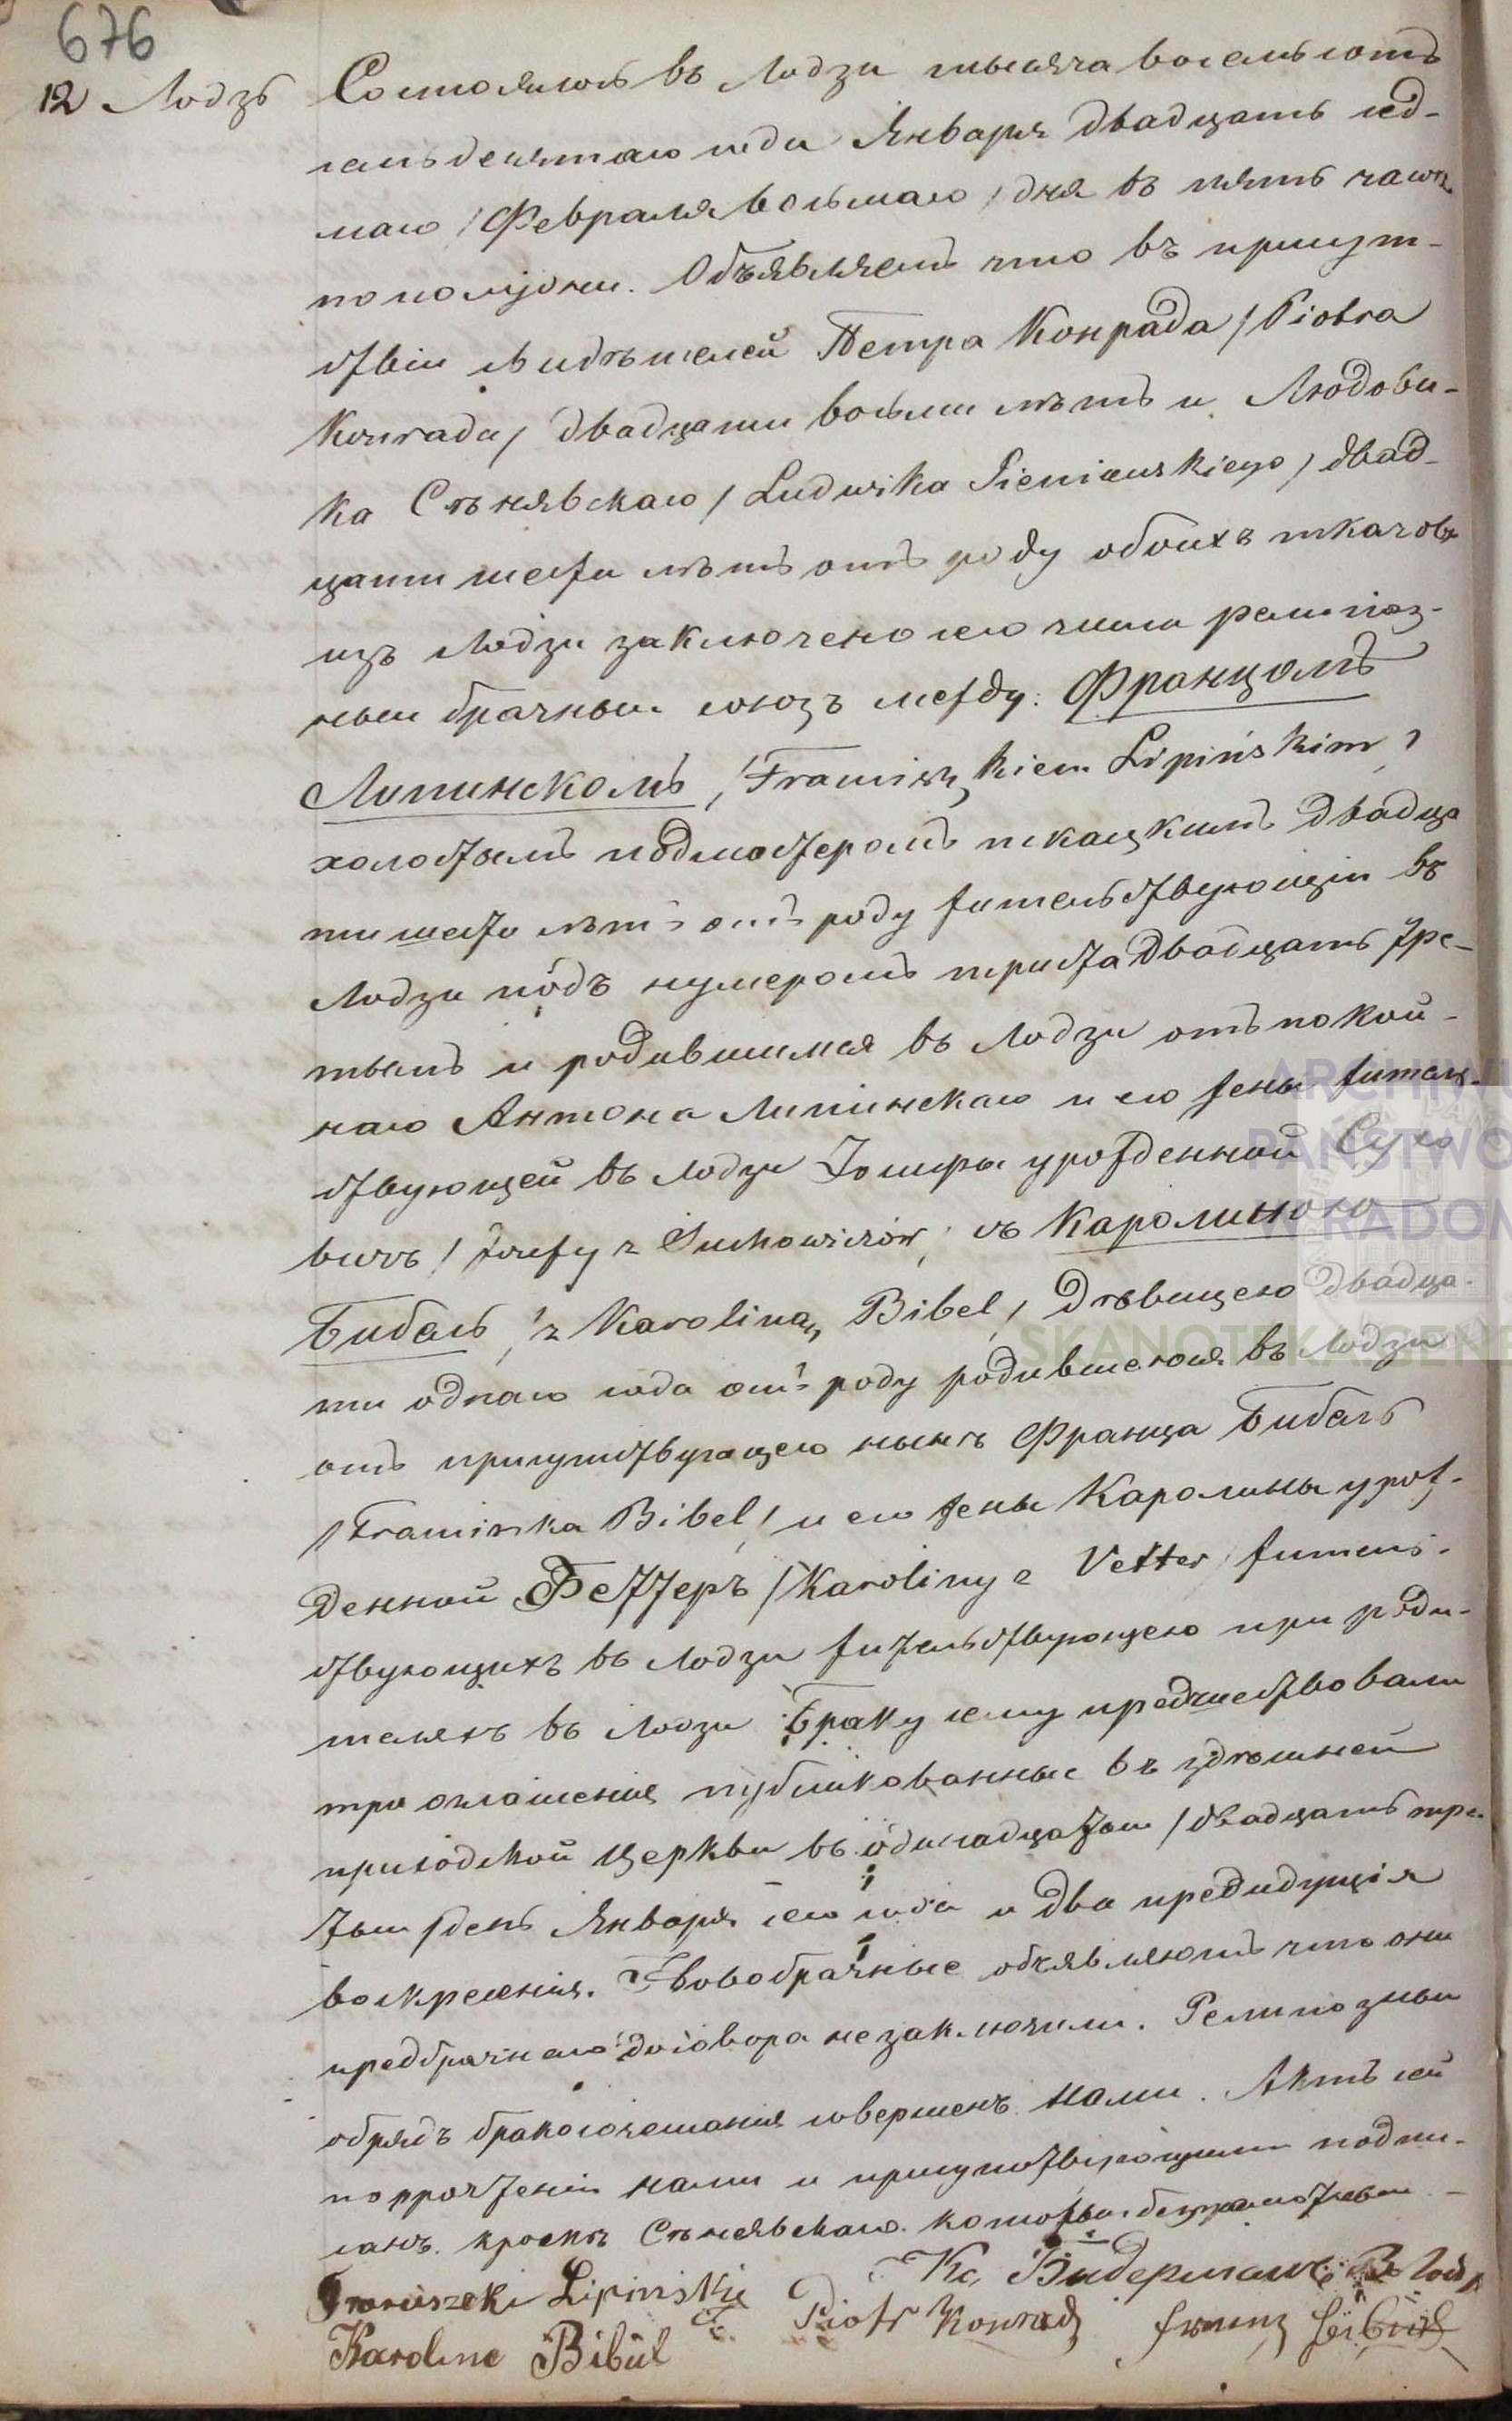 676
12 Лодзь
Состоялось въ Лодзи тысяча восемьсотъ
семьдесятаго года Января двадцать седь-
маго /Февраля восьмаго/ дня въ пять часовъ
по полудни. Объявляемъ что въ присут-
ствіи свидѣтелей Петра Конрада /Piotra
Konrada/ двадцати восьми лѣтъ и Людови-
ка Сѣнявскаго /Ludwika Sieniawskiego/ двад-
цати шести лѣтъ отъ роду обоихъ ткачовъ
изъ Лодзи заключено сего числа религіоз-
ный брачный союзъ между: Францомъ
Липинскомъ /Franciszkiem Lipińskim/
холостымъ подмастеромъ ткацкимъ двадца
ти шести лѣтъ отъ роду жительствующій въ
Лодзи подъ нумеромъ триста двадцать тре-
тьимъ и родившимся въ Лодзи отъ покой-
наго Антона Липинскаго и его жены житель-
ствующей въ Лодзи Іозефы урожденной Сухо
вичъ /Józefy z Suchowiczów/ съ Каролиною
Бибель /z Karoliną Bibel/ дѣвицею двадца-
ти однаго года отъ роду родившеюся въ Лодзи
отъ присутствующаго нынѣ Франца Бибель
/Franciszka Bibel/ и его жены Каролины урож-
денной Феттеръ /Karoliny z Vetter/ житель-
ствующихъ въ Лодзи жительствующею при роди-
теляхъ въ Лодзи Браку сему предшествовали
три оглашенія публикованные въ здѣшней
приходской церкви въ одинадцатый /двадцать тре-
тый/ день Января сего года и два предидущія
воскресенія. Новобрачные объявляютъ что они
предбрачнаго договора не заключили. Религіозный
обрядъ бракосочетанія совершенъ нами. Актъ сей
по прочтеніи нами и присутствующими подпи-
санъ кромѣ Сѣнявскаго который безграмотный
Кс. Бидерманъ
Franciszek Lipinski Piotr Konrad Franz
Karoline Bibül
ARCHIWU
PAŃSTWO
W RADOM
SKANOTEKA.GENE